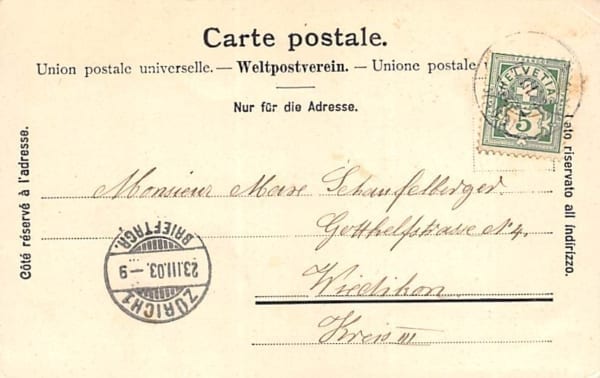 Carte postale.
Union postale universelle. — Weltpostverein. — Unione postale
Nur für die Adresse.
Côté réservé à l'adresse.
lato riservato all indirizzo.
HELVETIA
5
Monsieur Marc Schaufelberger
Gotthelfstrasse No 4.
Wiedikon
Kreis III
ZÜRICH 1
23.III.03.–9
BRIEFTRGR.